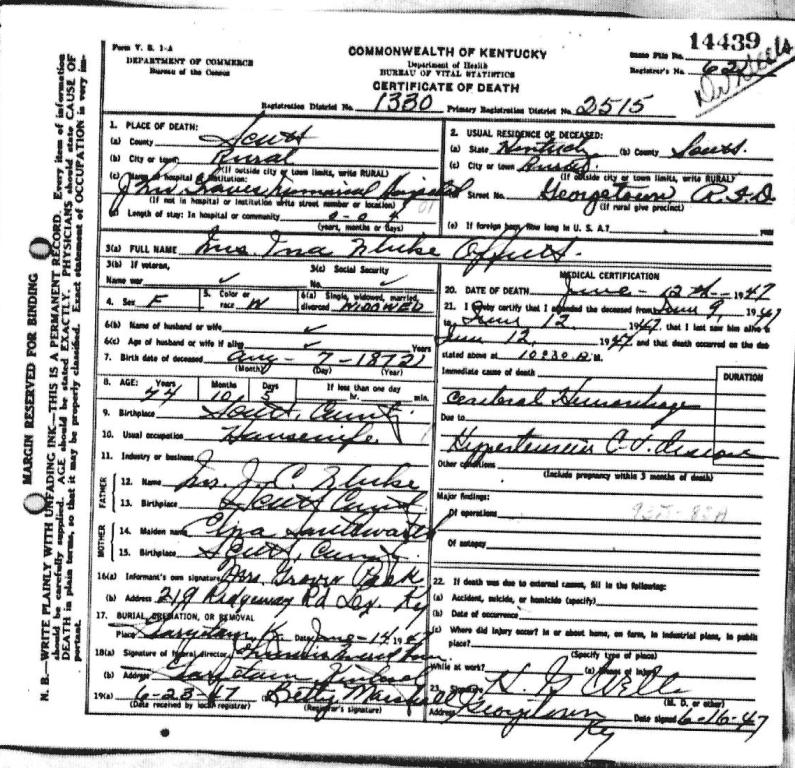 14439
Form V. S. 1-A
DEPARTMENT OF COMMERCE
Bureau of the Census
COMMONWEALTH OF KENTUCKY
Department of Health
BUREAU OF VITAL STATISTICS
CERTIFICATE OF DEATH
File No.
Registrar's No. 62
Registration District No. 1330 Primary Registration District No. 2515
MARGIN RESERVED FOR BINDING
N. B.—WRITE PLAINLY WITH UNFADING INK—THIS IS A PERMANENT RECORD. Every item of information
should be carefully supplied. AGE should be stated EXACTLY. PHYSICIANS should state CAUSE OF
DEATH in plain terms, so that it may be properly classified. Exact statement of OCCUPATION is very im-
portant.
1. PLACE OF DEATH:
(a) County Scott
(b) City or town Rural
(If outside city or town limits, write RURAL)
(c) Name of hospital or institution:
John Graves Memorial Hospital
(If not in hospital or institution write street number or location)
(d) Length of stay: In hospital or community 0-0-4
(years, months or days)
2. USUAL RESIDENCE OF DECEASED:
(a) State Kentucky (b) County Scott
(c) City or town Rural
(If outside city or town limits, write RURAL)
(d) Street No. Georgetown R.F.D.
(If rural give precinct)
(e) If foreign born, how long in U. S. A.? years
3(a) FULL NAME Mrs. Ina Offutt
3(b) If veteran,
Name war
3(c) Social Security
No.
4. Sex F
5. Color or
race W
6(a) Single, widowed, married,
divorced WIDOWED
6(b) Name of husband or wife
6(c) Age of husband or wife if alive Years
7. Birth date of deceased Aug - 7 - 1872
(Month) (Day) (Year)
8. AGE: Years Months Days If less than one day
10 5 hr. min.
9. Birthplace Scott County
10. Usual occupation Housewife
11. Industry or business
FATHER
12. Name J. C.
13. Birthplace Scott County
MOTHER
14. Maiden name Southworth
15. Birthplace Scott County
16(a) Informant's own signature Mrs. Grover Peak
(b) Address 219 Ridgeway Rd Lex. Ky
17. BURIAL, CREMATION, OR REMOVAL
Place Georgetown Ky. Date June-14 1947
18(a) Signature of funeral director
(b) Address Georgetown
19(a) 6-23-47 Betty Marshall
(Date received by local registrar) (Registrar's signature)
MEDICAL CERTIFICATION
20. DATE OF DEATH June - 12th 1947
21. I hereby certify that I attended the deceased from June 9, 1947
to June 12, 1947, that I last saw him alive
June 12, 1947 and that death occurred on the date
stated above at 10:30 M.
Immediate cause of death DURATION
Cerebral Hemorrhage
Due to
Hypertensive C-V. disease
Other conditions
(Include pregnancy within 3 months of death)
Major findings:
Of operations
Of autopsy
22. If death was due to external causes, fill in the following:
(a) Accident, suicide, or homicide (specify)
(b) Date of occurrence
(c) Where did injury occur? In or about home, on farm, in industrial place, in public
place?
(Specify type of place)
While at work? (e) Means of injury
23. Signature H. G. Wells
(M. D. or other)
Address Georgetown Ky Date signed 6-16-47